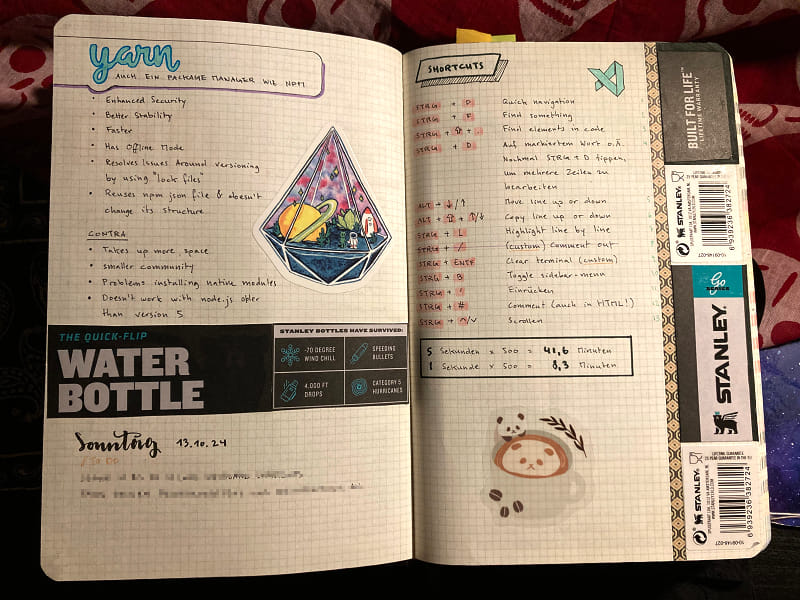 yarn
AUCH EIN PACKAGE MANAGER WIE NPM
• Enhanced Security
• Better Stability
• Faster
• Has Offline Mode
• Resolves Issues Around versioning
by using "lock files"
• Reuses npm json file & doesn't
change its structure.
CONTRA
• Takes up more space
• smaller community
• Problems installing native modules
• Doesn't work with node.js older
than version 5
THE QUICK-FLIP
WATER
BOTTLE
STANLEY BOTTLES HAVE SURVIVED:
-70 DEGREE
WIND CHILL
SPEEDING
BULLETS
4,000 FT
DROPS
CATEGORY 5
HURRICANES
Sonntag 13.10.24
SHORTCUTS
STRG + P Quick navigation
STRG + F Find something
STRG + ⇧ + . Find elements in code
STRG + D Auf markiertem Wort o.Ä.
Nochmal STRG + D tippen,
um mehrere Zeilen zu
bearbeiten
ALT + ↓/↑ Move line up or down
ALT + ⇧ + ↑/↓ Copy line up or down
STRG + L Highlight line by line
STRG + / (custom) Comment out
STRG + ENTF Clear terminal (custom)
STRG + B Toggle sidebar-menu
STRG + Einrücken
STRG + # Comment (auch in HTML!)
STRG + ^/v Scrollen
5 Sekunden x 500 = 41,6 Minuten
1 Sekunde x 500 = 8,3 Minuten
BUILT FOR LIFE™
LIFETIME WARRANTY
STANLEY
WWW.STANLEY1913.COM
6 939236 382724
10-09148-027
Go
SERIES
STANLEY
LIFETIME GUARANTEE
STANLEY
WWW.STANLEY1913.COM
6 939236 382724
10-09148-027